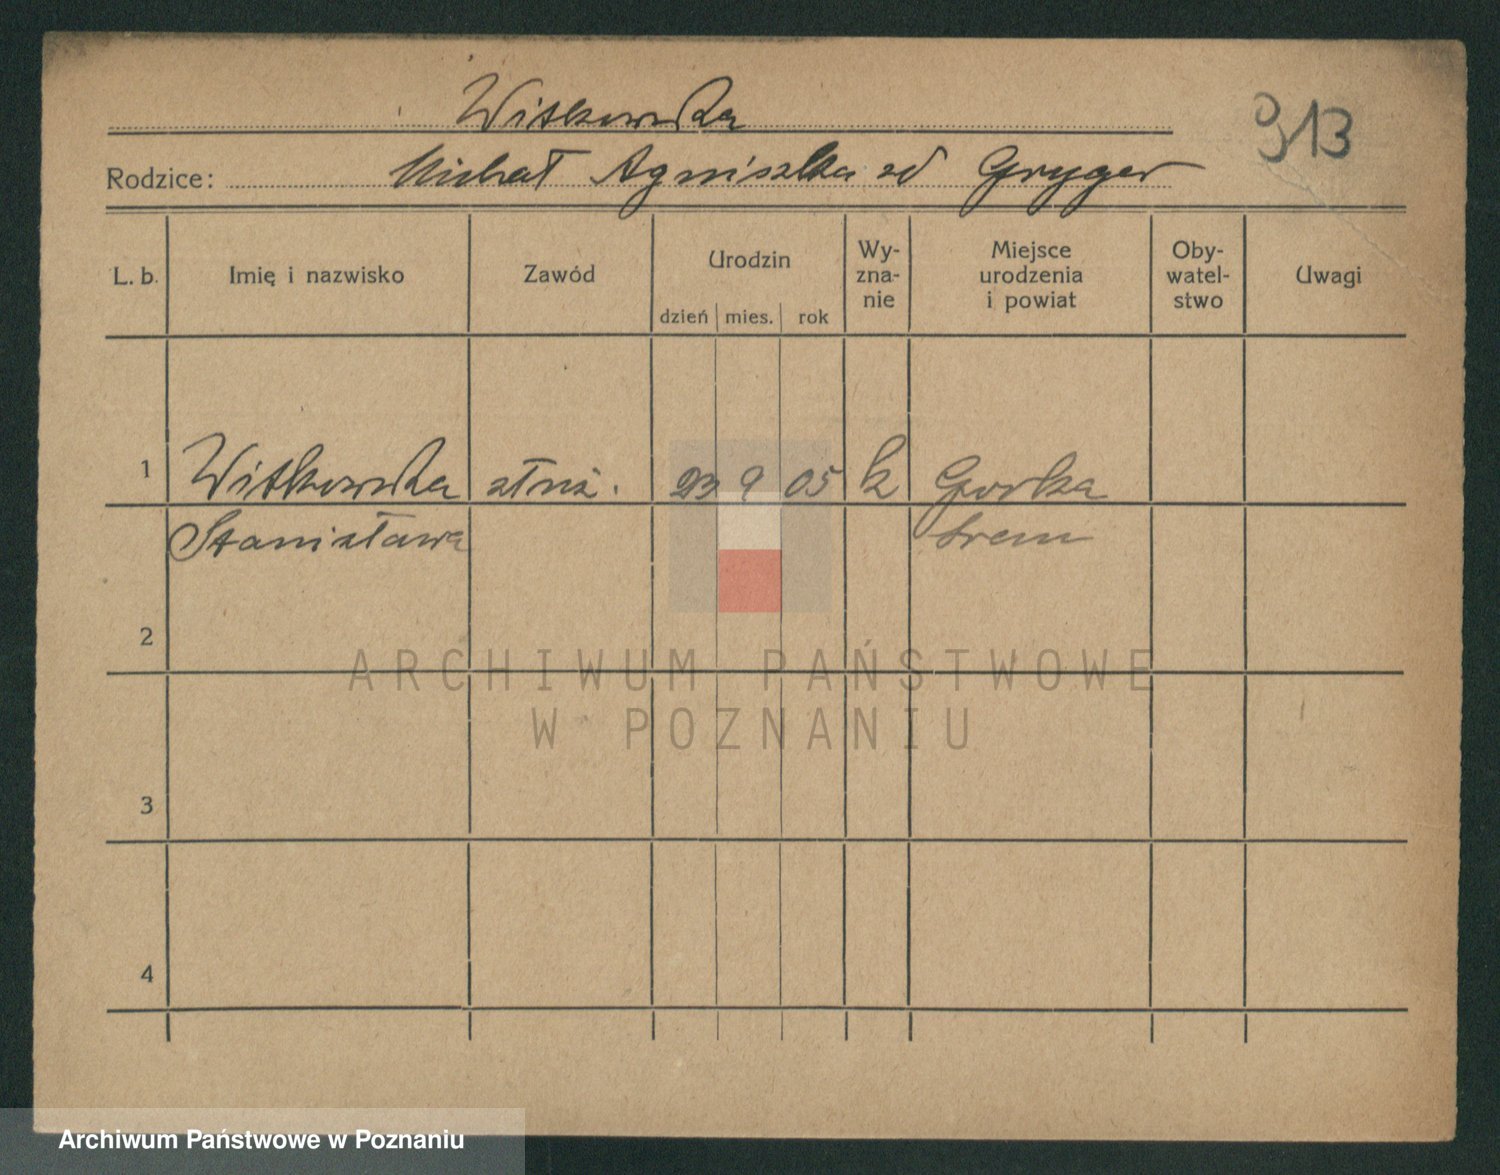 Witkowska
913
Rodzice: Michał Agniszka zd Gryger
L. b. Imię i nazwisko Zawód Urodzin dzień mies. rok Wy-zna-nie Miejsce urodzenia i powiat Oby-watel-stwo Uwagi
1 Witkowska służ. 23 9 05 k Gorka
Stanisława Srem
2
3
4
ARCHIWUM PAŃSTWOWE
W POZNANIU
Archiwum Państwowe w Poznaniu